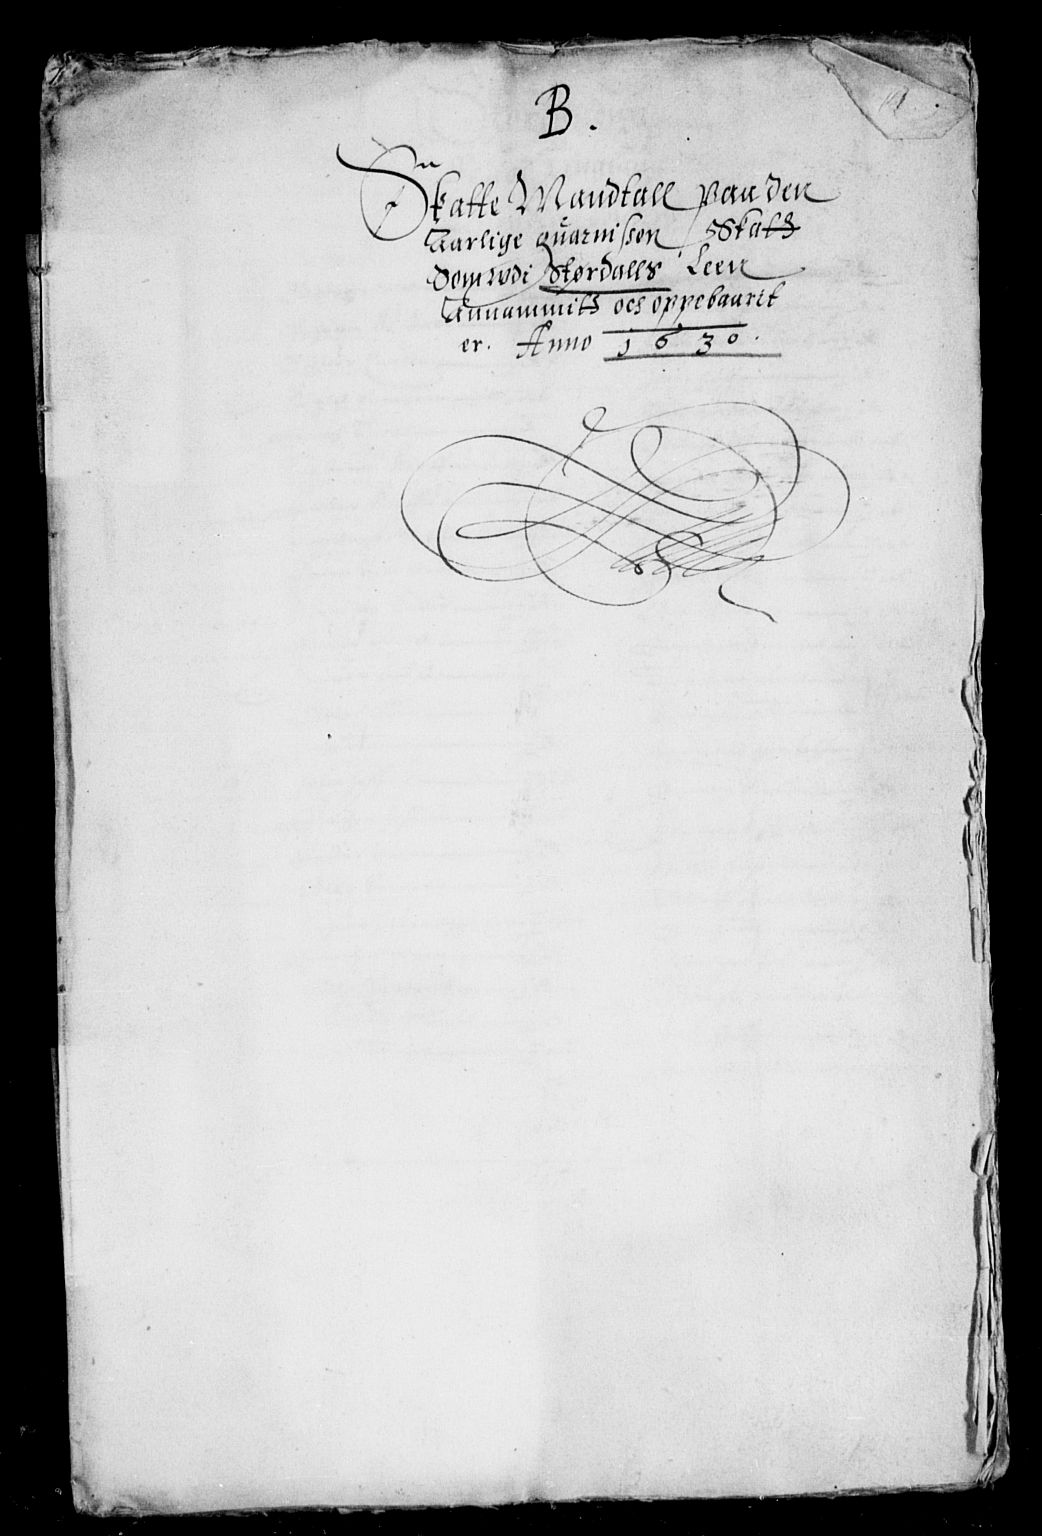 B.
Skatte Mandtall paa den
Aarlige guarnison Skatt
Som udi Størdalls Leen
Annammitt och oppebaarit
er. Anno 1630.